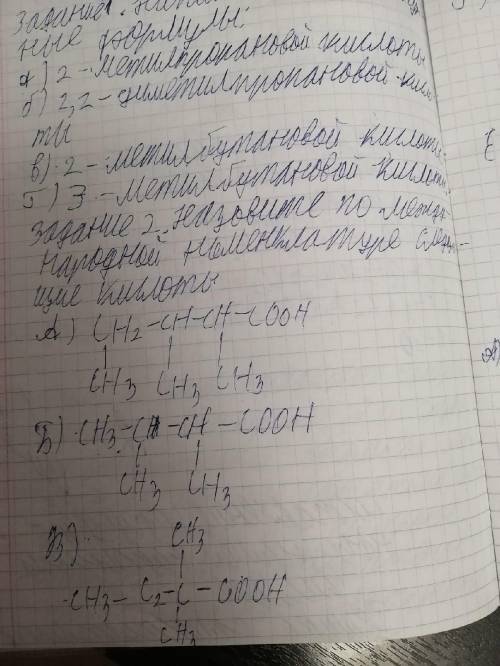 Задание
ные формулы:
а) 2-метилпропановой кислоты
б) 2,2-диметилпропановой кисло
ты
в) 2-метилбутановой кислоты
г) 3-метилбутановой кислоты
Задание 2. Назовите по между-
народной номенклатуре следую-
щие кислоты
А) CH2-CH-CH-COOH
CH3 CH3 CH3
Б) CH3-CH-CH-COOH
CH3 CH3
В)
CH3
CH3-C2-C-COOH
CH3